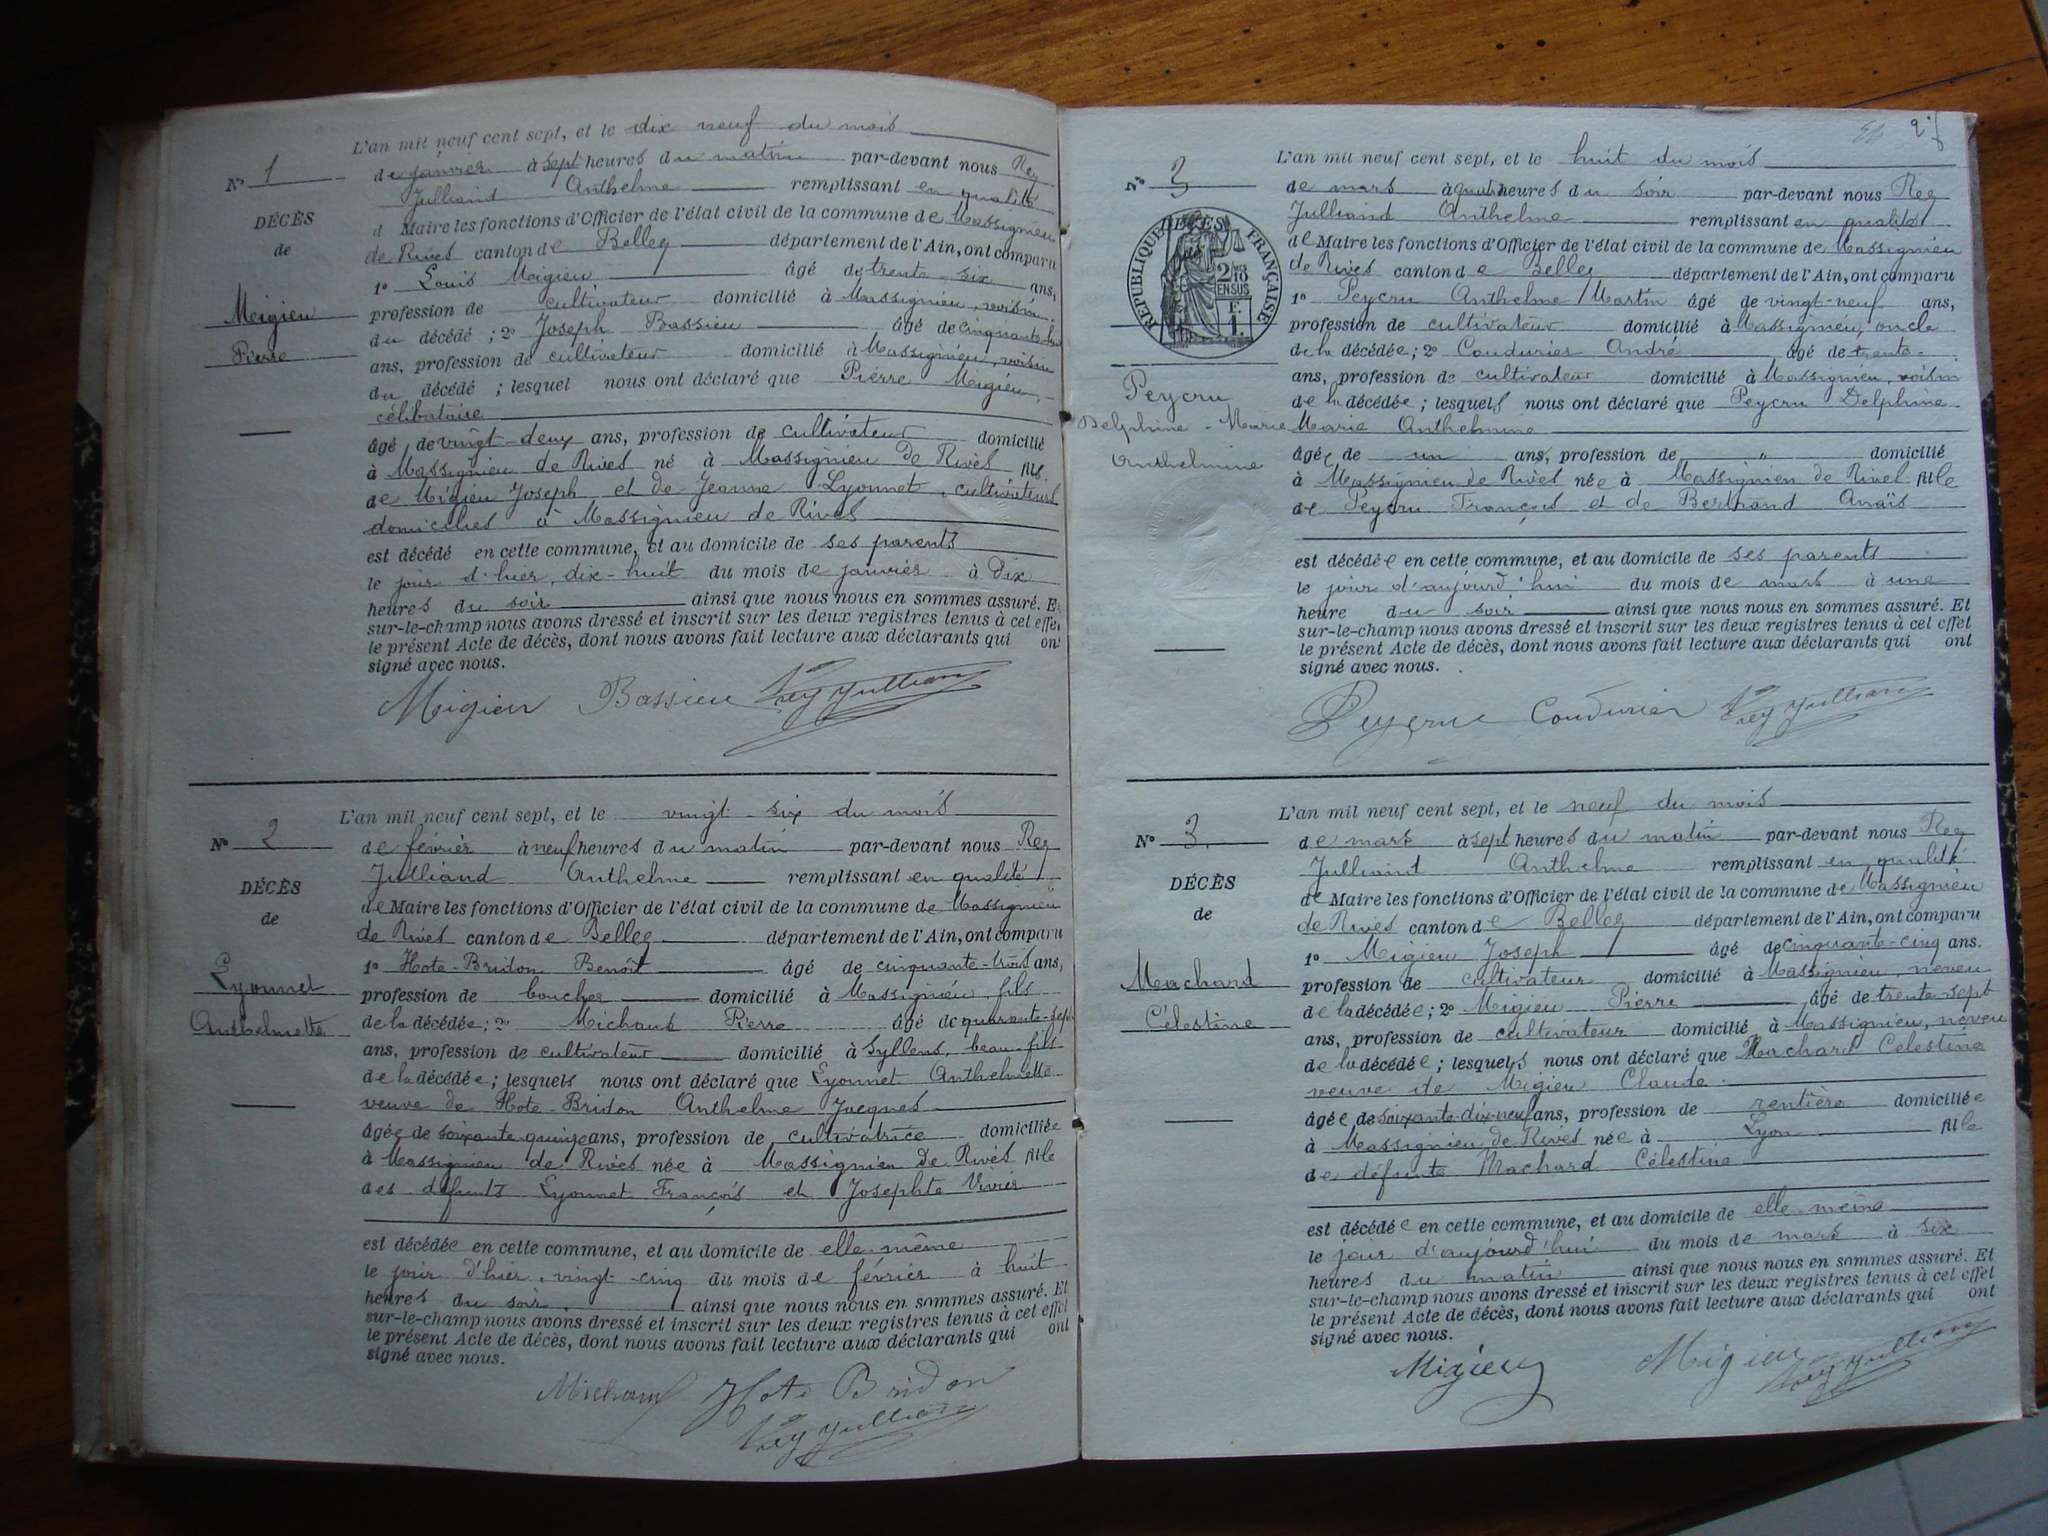 L'an mil neuf cent sept, et le dix neuf du mois
N° 1
de janvier à sept heures du matin par-devant nous Rey
Julliand Anthelme remplissant en qualité
DÉCÈS
d Maire les fonctions d'Officier de l'état civil de la commune de Massignieu
de
de Rives canton de Belley département de l'Ain, ont comparu
1° Louis Migieu âgé de trente-six ans,
Meigieu
Pierre
profession de cultivateur domicilié à Massignieu, voisin
du décédé ; 2° Joseph Bassieu âgé de cinquante
ans, profession de cultivateur domicilié à Massignieu, voisin
du décédé ; lesquel nous ont déclaré que Pierre Migieu,
célibataire
âgé de vingt-deux ans, profession de cultivateur domicilié
à Massignieu de Rives né à Massignieu de Rives fils
de Migieu Joseph et de Jeanne Lyonnet, cultivateurs
domiciliés à Massignieu de Rives
est décédé en cette commune, et au domicile de ses parents
le jour d'hier, dix-huit du mois de janvier à dix
heures du soir ainsi que nous nous en sommes assuré. Et
sur-le-champ nous avons dressé et inscrit sur les deux registres tenus à cet effet
le présent Acte de décès, dont nous avons fait lecture aux déclarants qui ont
signé avec nous.
Migieu Bassieu Rey Julliand
L'an mil neuf cent sept, et le vingt-six du mois
N° 2
de février à neuf heures du matin par-devant nous Rey
Julliand Anthelme remplissant en qualité
DÉCÈS
de Maire les fonctions d'Officier de l'état civil de la commune de Massignieu
de
de Rives canton de Belley département de l'Ain, ont comparu
1° Hote-Bridon Benoît âgé de cinquante-trois ans,
Lyonnet
Anthelmette
profession de boucher domicilié à Massignieu, fils
de la décédée ; 2° Michaud Pierre âgé de quarante-sept
ans, profession de cultivateur domicilié à Syllens, beau-fils
de la décédée ; lesquels nous ont déclaré que Lyonnet Anthelmette
veuve de Hote-Bridon Anthelme Jacques
âgée de soixante-quinze ans, profession de cultivatrice domiciliée
à Massignieu de Rives née à Massignieu de Rives fille
des défunts Lyonnet François et Josephte Vivier
est décédée en cette commune, et au domicile de elle-même
le jour d'hier, vingt-cinq du mois de février à huit
heures du soir, ainsi que nous nous en sommes assuré. Et
sur-le-champ nous avons dressé et inscrit sur les deux registres tenus à cet effet
le présent Acte de décès, dont nous avons fait lecture aux déclarants qui ont
signé avec nous.
Michaud Hote Bridon
Rey Julliand
2
L'an mil neuf cent sept, et le huit du mois
N° 3
de mars à quatre heures du soir par-devant nous Rey
Julliand Anthelme remplissant en qualité
DÉCÈS
de
RÉPUBLIQUE FRANÇAISE
2/10 EN SUS
F.
1.
de Maire les fonctions d'Officier de l'état civil de la commune de Massignieu
de Rives canton de Belley département de l'Ain, ont comparu
1° Peycru Anthelme Martin âgé de vingt-neuf ans,
profession de cultivateur domicilié à Massignieu, oncle
de la décédée ; 2° Coudurier André âgé de trente
Peycru
Delphine-Marie
Anthelmine
ans, profession de cultivateur domicilié à Massignieu, voisin
de la décédée ; lesquels nous ont déclaré que Peycru Delphine
Marie Anthelmine
âgée de un ans, profession de " domicilié
à Massignieu de Rives née à Massignieu de Rives fille
de Peycru François et de Bertrand Anaïs
est décédée en cette commune, et au domicile de ses parents
le jour d'aujourd'hui du mois de mars à une
heure du soir ainsi que nous nous en sommes assuré. Et
sur-le-champ nous avons dressé et inscrit sur les deux registres tenus à cet effet
le présent Acte de décès, dont nous avons fait lecture aux déclarants qui ont
signé avec nous.
Peycru Coudurier Rey Julliand
L'an mil neuf cent sept, et le neuf du mois
N° 3.
de mars à sept heures du matin par-devant nous Rey
Julliand Anthelme remplissant en qualité
DÉCÈS
de Maire les fonctions d'Officier de l'état civil de la commune de Massignieu
de
de Rives canton de Belley département de l'Ain, ont comparu
1° Migieu Joseph âgé de cinquante-cinq ans.
Machard
Célestine
profession de cultivateur domicilié à Massignieu, neveu
de la décédée ; 2° Migieu Pierre âgé de trente-sept
ans, profession de cultivateur domicilié à Massignieu, neveu
de la décédée ; lesquels nous ont déclaré que Machard Célestine
veuve de Migieu Claude
âgée de soixante-dix-neuf ans, profession de rentière domiciliée
à Massignieu de Rives née à Lyon fille
de défunte Machard Célestine
est décédée en cette commune, et au domicile de elle-même
le jour d'aujourd'hui du mois de mars à six
heures du matin ainsi que nous nous en sommes assuré. Et
sur-le-champ nous avons dressé et inscrit sur les deux registres tenus à cet effet
le présent Acte de décès, dont nous avons fait lecture aux déclarants qui ont
signé avec nous.
Migieu Migieu Rey Julliand